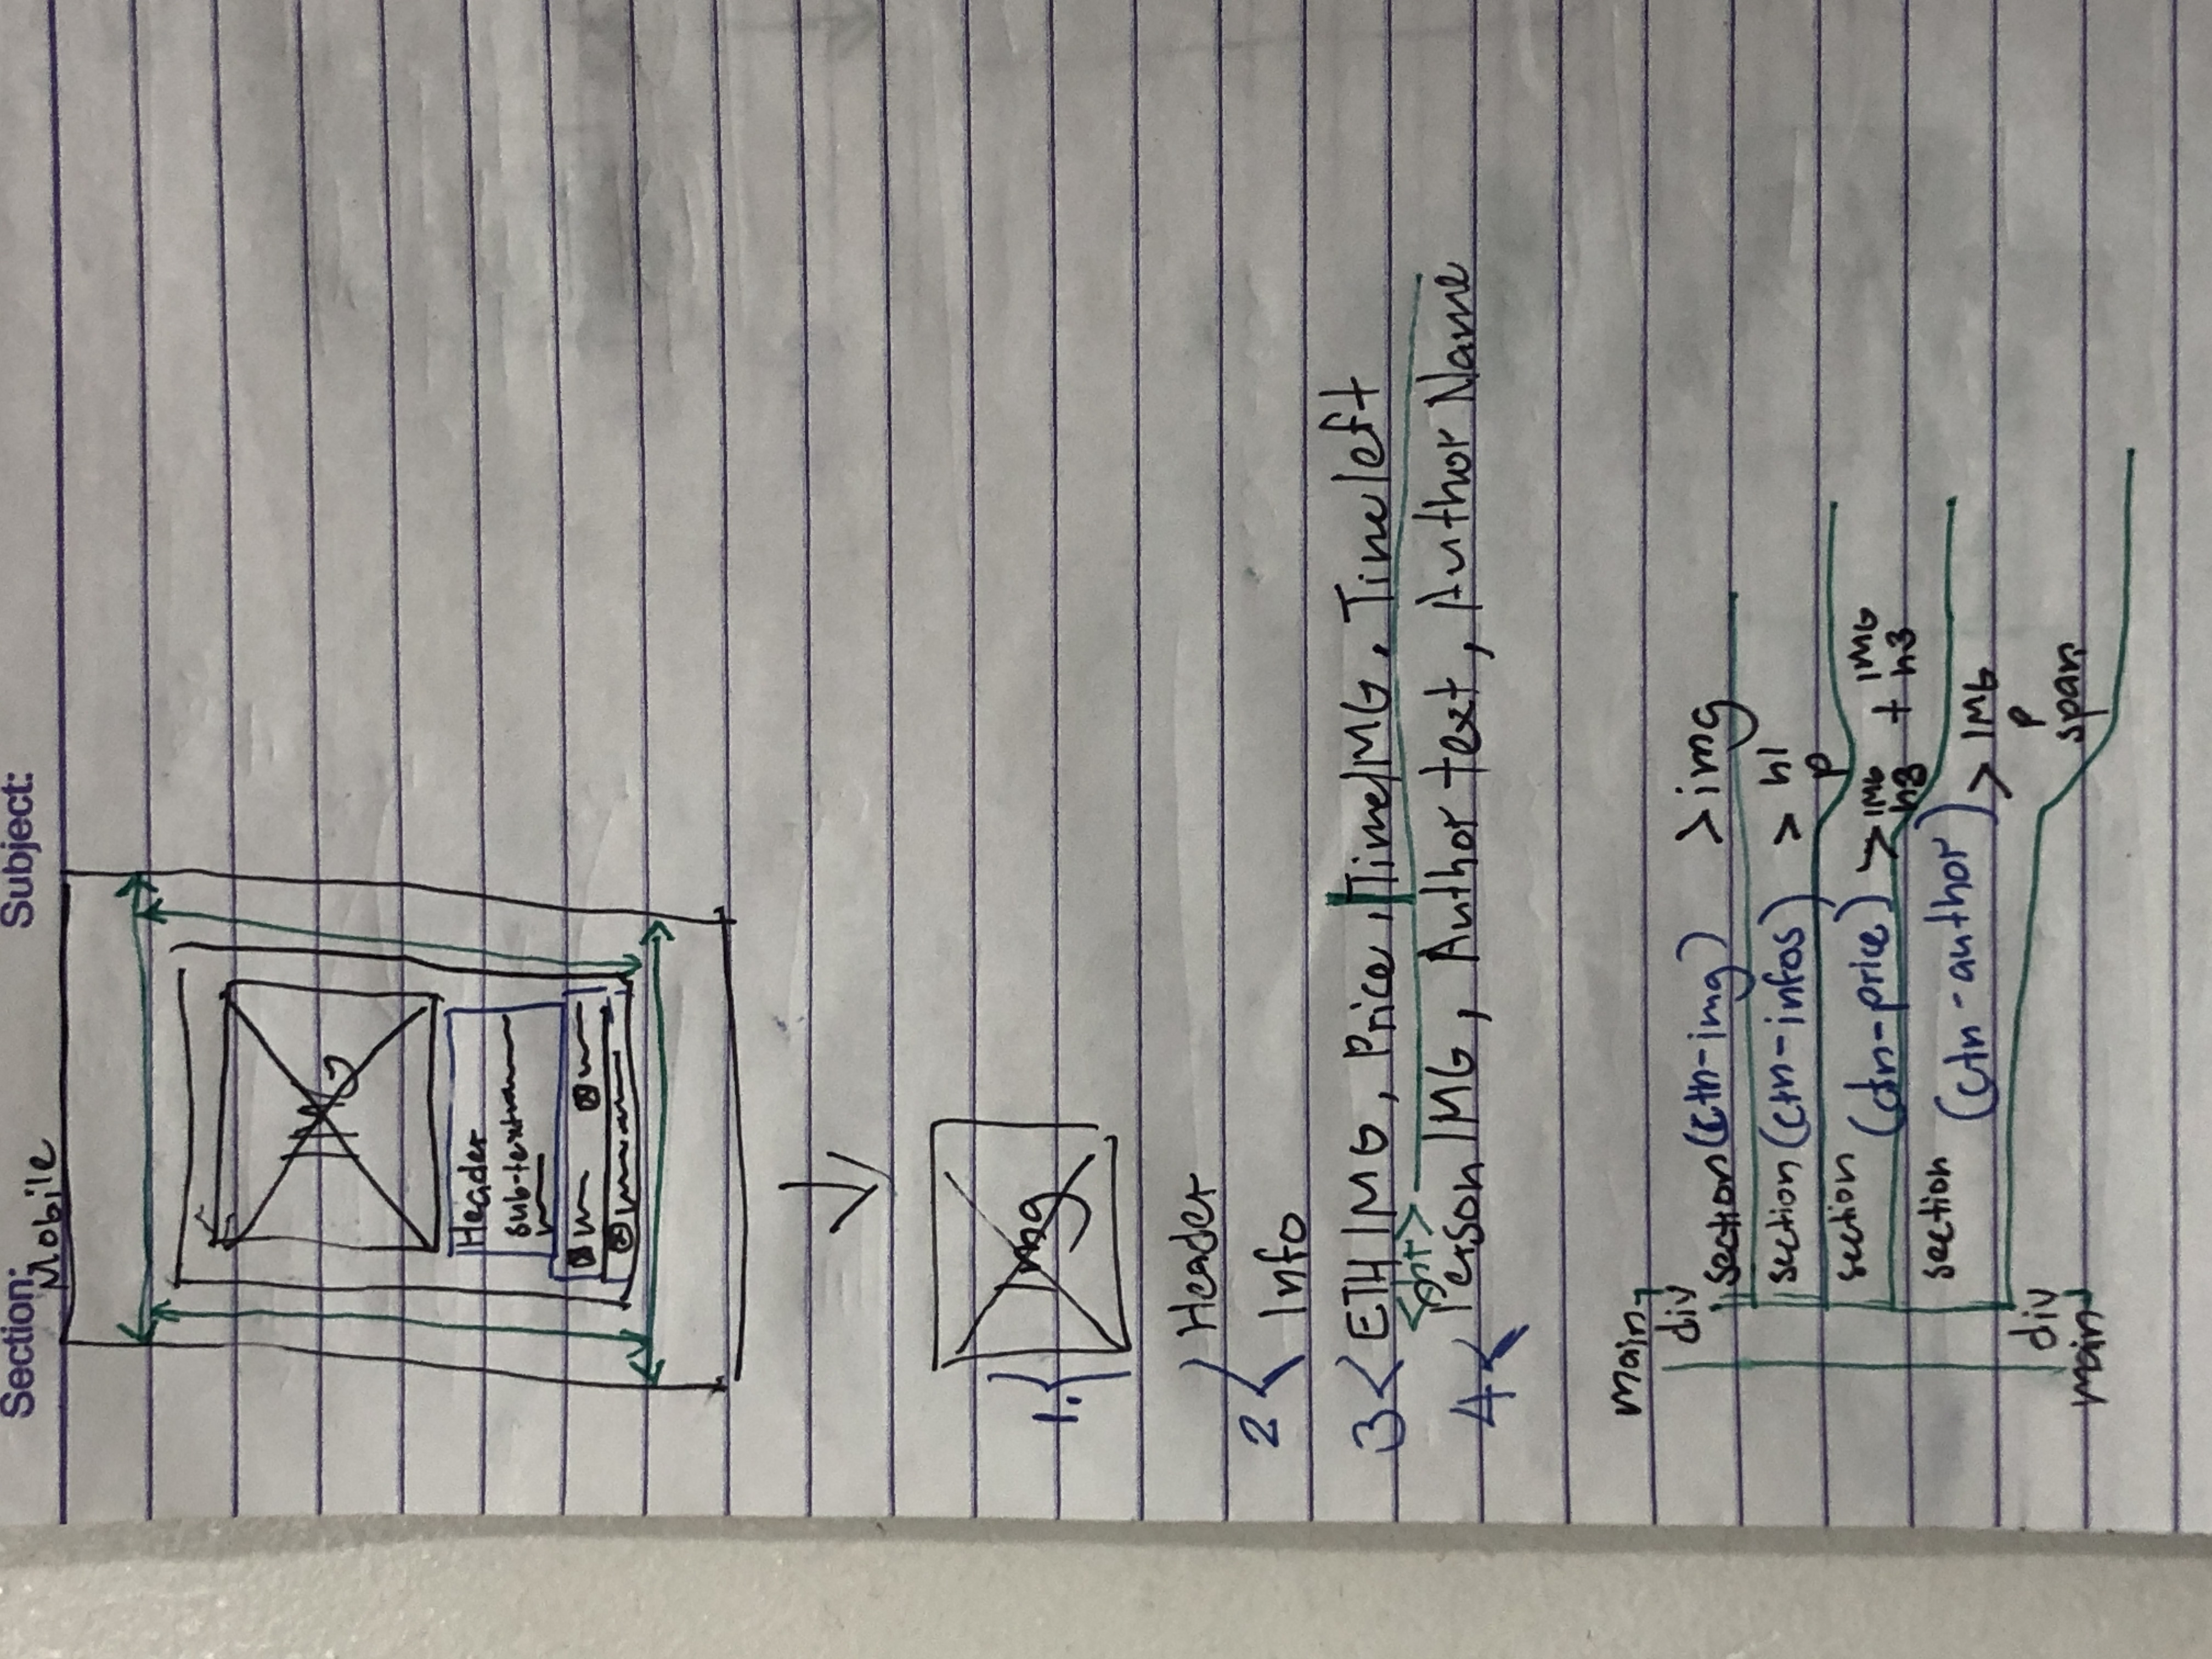 Section: Subject:
Mobile
IMG
Header
sub-text
Img
1.
Header
2
Info
3 ETH IMG, Price, Time IMG. Time left
<hr>
4 Person IMG, Author text, Author Name
main
div
section (ctn-img) > img
section (ctn-infos) > h1
p
section (ctn-price) > IMG + IMG
h3 h3
section (ctn-author) > IMG
p
div
span
main